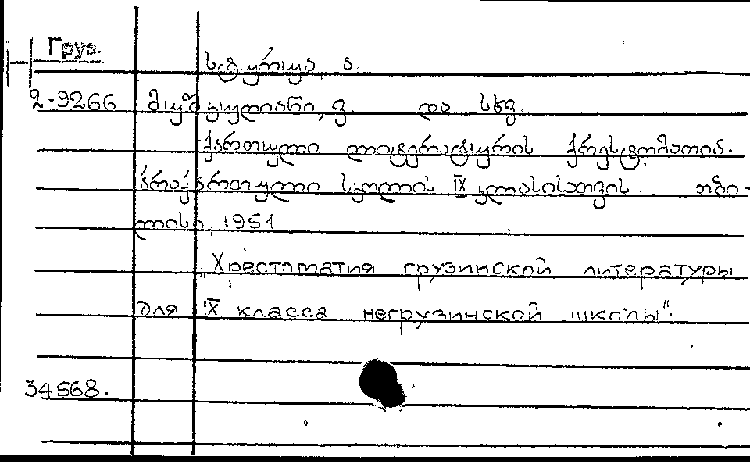 Груз.
2-9266 და სხვ.
ქართული ლიტერატურის ქრესტომათია.
არაქართული სკოლის IX კლასისათვის. თბი-
ლისი, 1951
„Хрестоматия грузинской литературы
для IX класса негрузинской школы“.
34568.